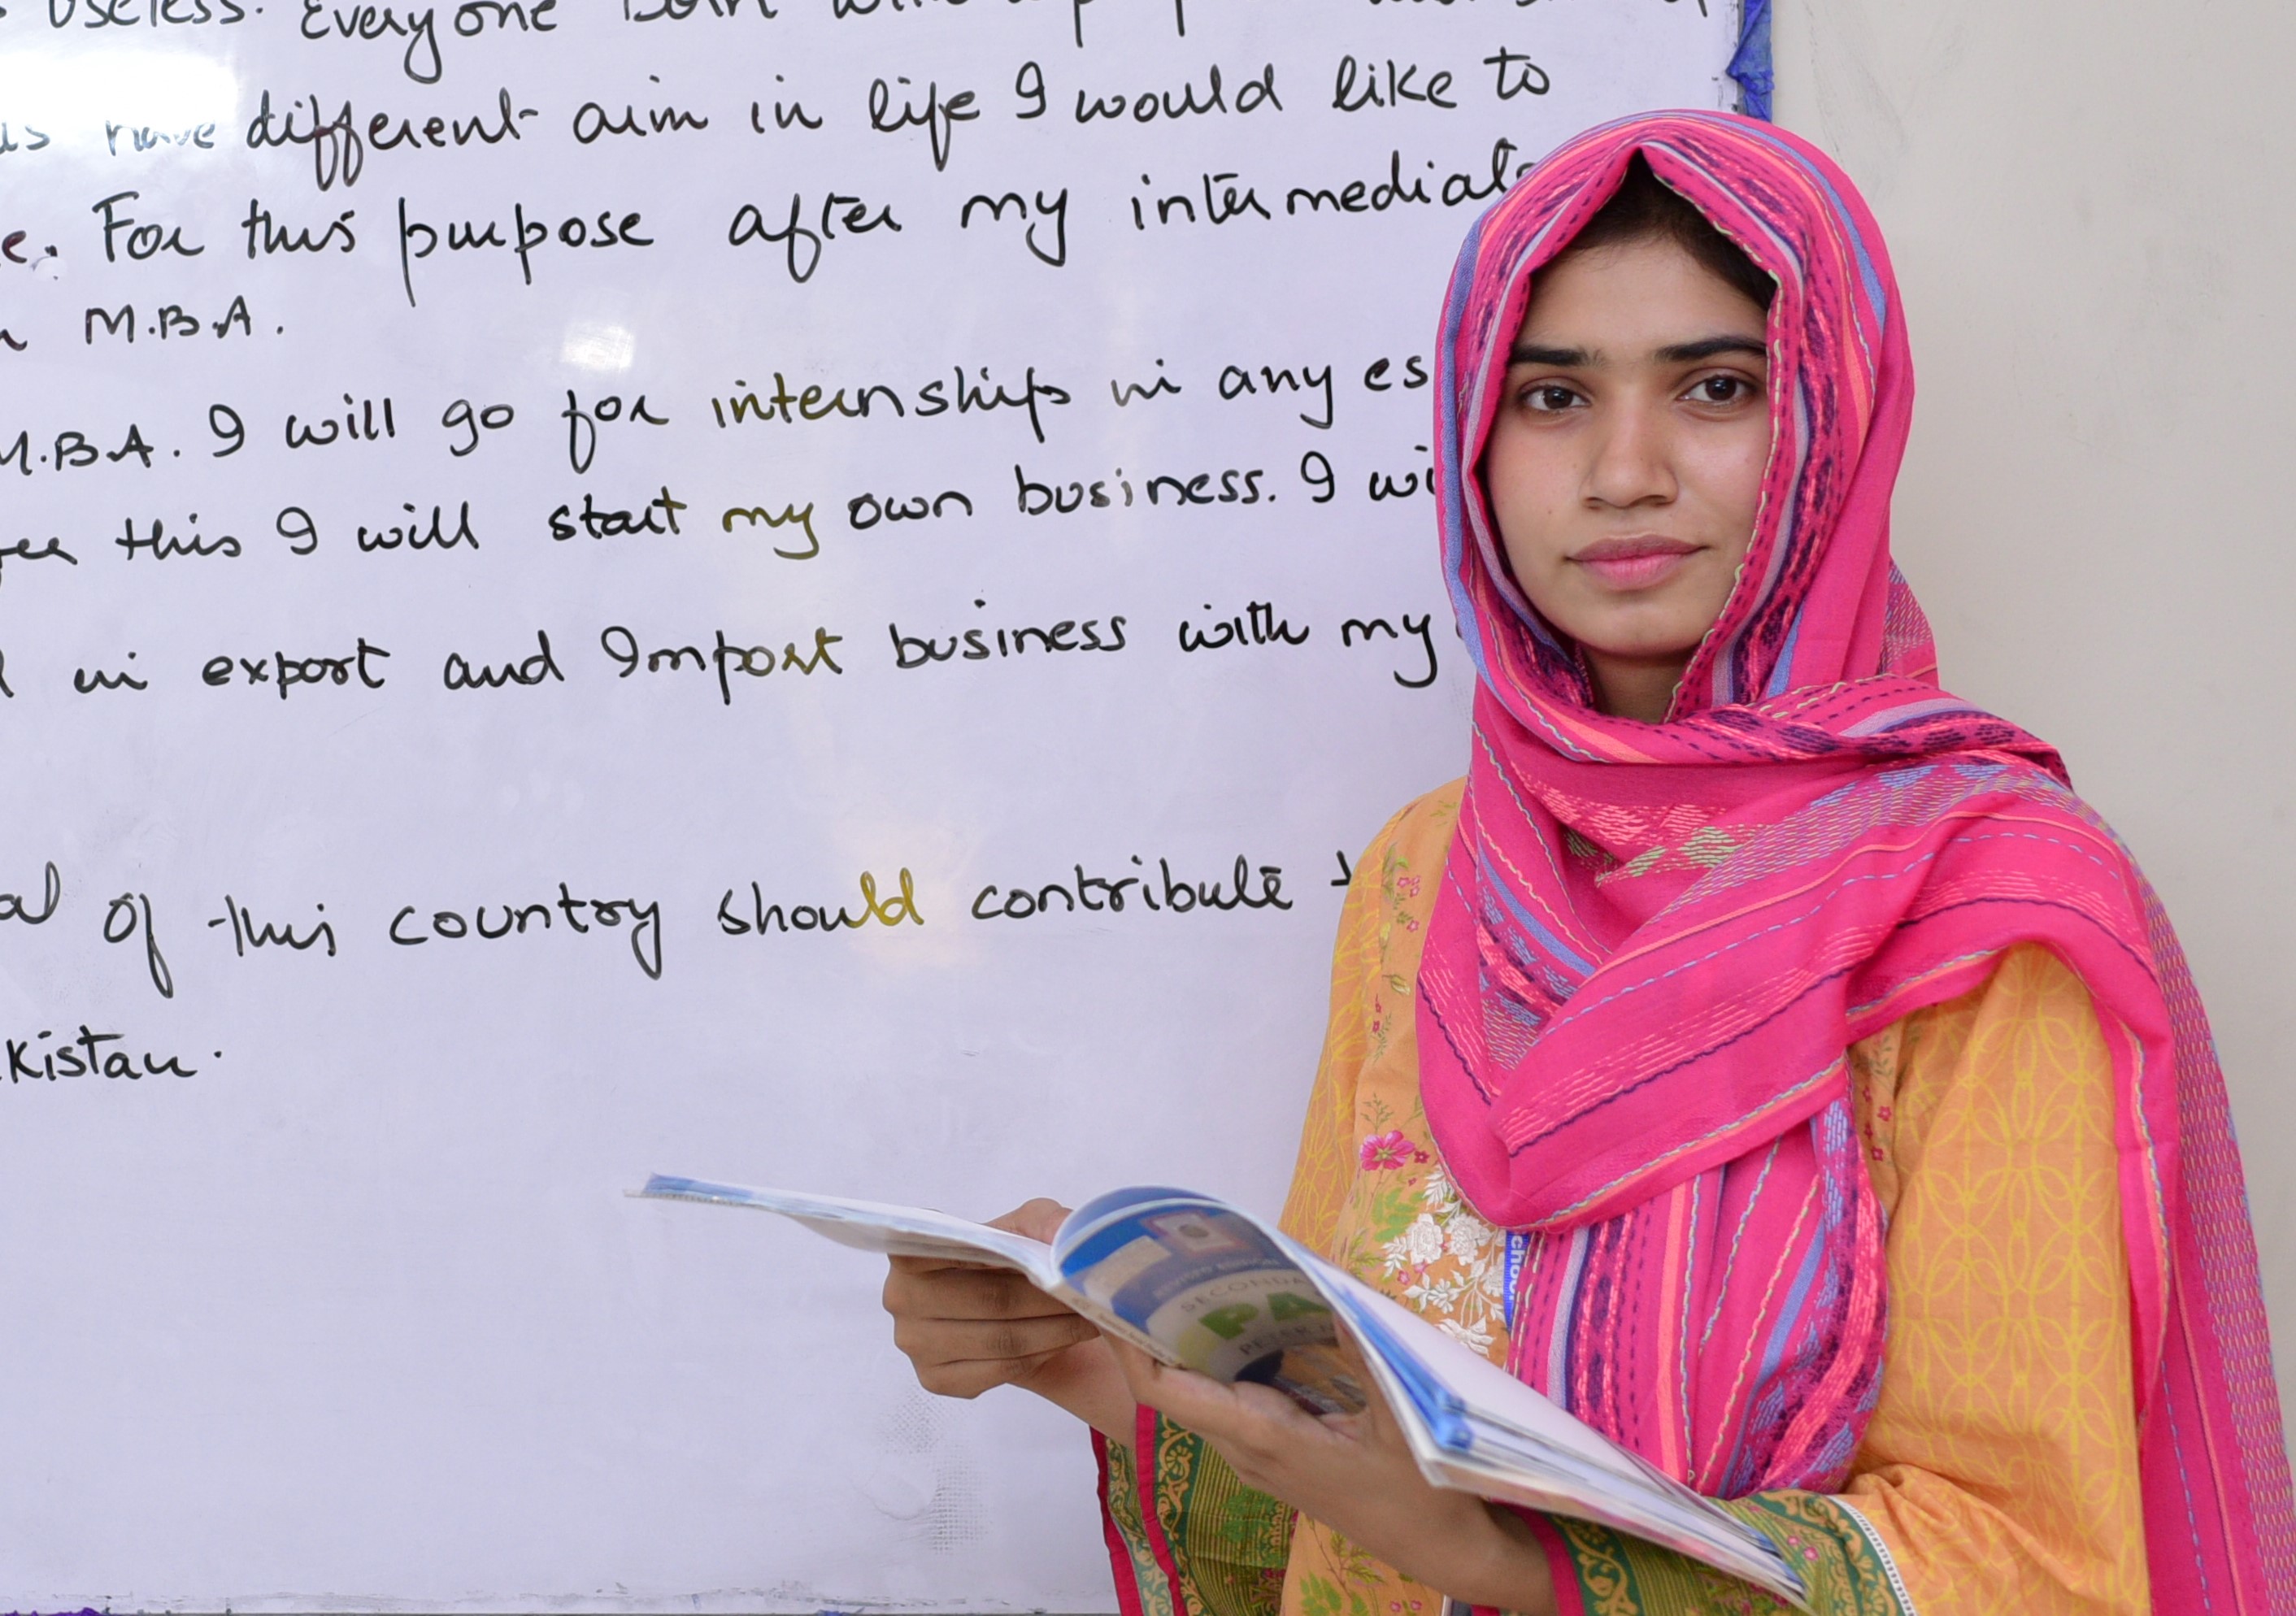 Useless. Everyone
have different aim in life I would like to
e. For this purpose after my intermediate
M.B.A.
M.B.A. I will go for internship in any es
this I will start my own business. I wi
in export and Import business with my
al of this country should contribute
kistan.
SECONDA
PA